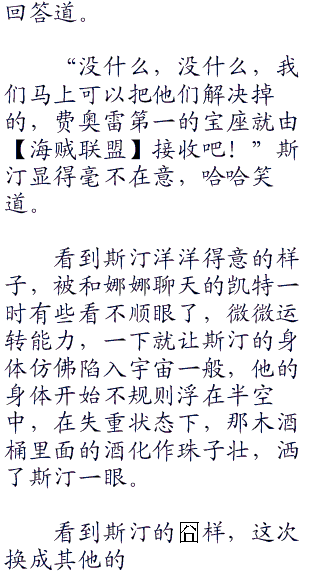 回答道。
“没什么，没什么，我
们马上可以把他们解决掉
的，费奥雷第一的宝座就由
【海贼联盟】接收吧！”斯
汀显得毫不在意，哈哈笑
道。
看到斯汀洋洋得意的样
子，被和娜娜聊天的凯特一
时有些看不顺眼了，微微运
转能力，一下就让斯汀的身
体仿佛陷入宇宙一般，他的
身体开始不规则浮在半空
中，在失重状态下，那木酒
桶里面的酒化作珠子壮，洒
了斯汀一眼。
看到斯汀的囧样，这次
换成其他的